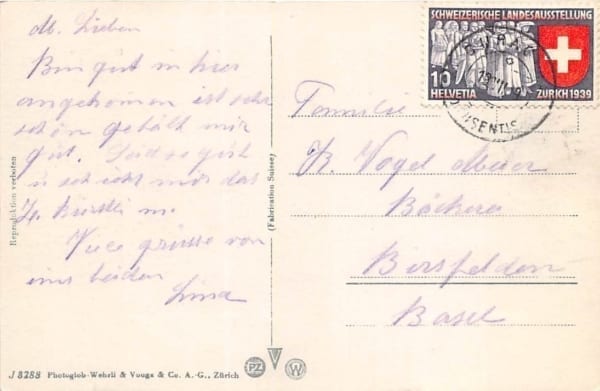 M. Lieben
Bin gut in hier
angekommen ist sehr
schön gefällt mir
gut. Seid so gut
u schickt mir das
Viele grüsse von
uns beiden
Lina
Reproduktion verboten
(Fabrication Suisse)
J 8288 Photoglob-Wehrli & Vouga & Co. A.-G., Zürich
PZ
W
SCHWEIZERISCHE LANDESAUSSTELLUNG
10 HELVETIA ZÜRICH 1939
Familie
Vogel Meier
Bäckerei
Birsfelden
Basel